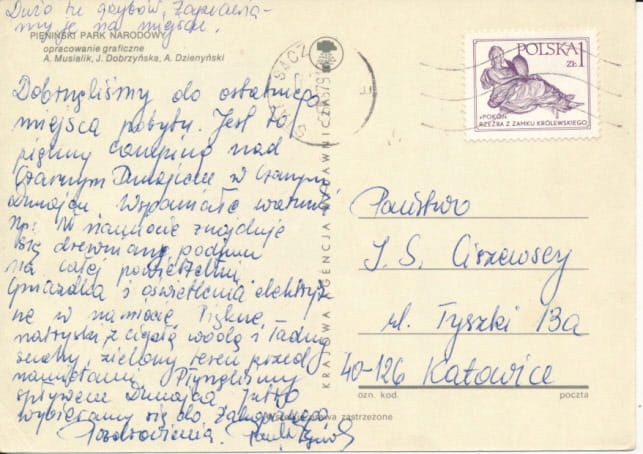 Dużo tu grzybów, zapiekla-
my je na miejscu.
PIENIŃSKI PARK NARODOWY
opracowanie graficzne
A. Musialik, J. Dobrzyńska, A. Dzienyński
Dobrnęliśmy do ostatniego
miejsca pobytu. Jest to
piękny camping nad
Czarnym Dunajcem w Czarnym
Dunajcu. Wspaniałe warunki
Np: W namiocie znajduje
się drewniany podium
na całej powierzchni
gniazdka i oświetlenie elektrycz-
ne w namiocie. Piękne
natryski z ciepłą wodą i ładny
suchy, zielony teren przed
namiotami. Płynęliśmy
spływem Dunajca. Jutro
wybieramy się do Zakopanego
Pozdrowienia.
KRAJOWA AGENCJA WYDAWNICZA
POLSKA 1
ZŁ
«POKÓJ»
RZEŹBA Z ZAMKU KRÓLEWSKIEGO
Państwo
J. S. Ciszewscy
ul. Tyszki 13a
40-126 Katowice
ozn. kod.
poczta
zastrzeżone